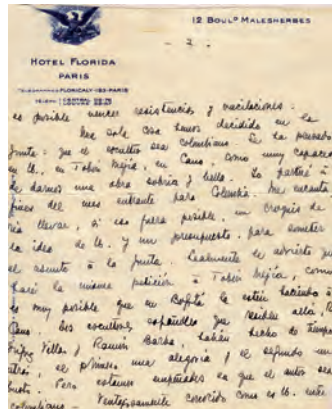 12 BOULD MALESHERBES
- 2 -
HOTEL FLORIDA
PARIS
es posible vencer resistencias y vacilaciones.
Una sola cosa hemos decidido en la
Junta: que el escultor sea colombiano. Se ha pensado
en Ud., en Tobón Mejía, en Cano, como muy capaces
de darnos una obra sobria y bella. Yo partiré a
fines del mes entrante para Colombia. Me encanta
ría llevar, si eso fuera posible, un croquis de
la idea de Ud. y un presupuesto, para someter
el asunto à la Junta. Lealmente le advierto que
haré la misma petición à Tobón Mejía, como
es muy posible que en Bogotá la estén haciendo à
Cano. Dos escultores españoles que residen allá,
Villa y Ramón Barba, habían hecho de tiempo
atrás, el primero una alegoría y el segundo un
busto. Pero estamos empeñados en que el autor sea
colombiano. Ventajosamente conocido como es Ud. entre